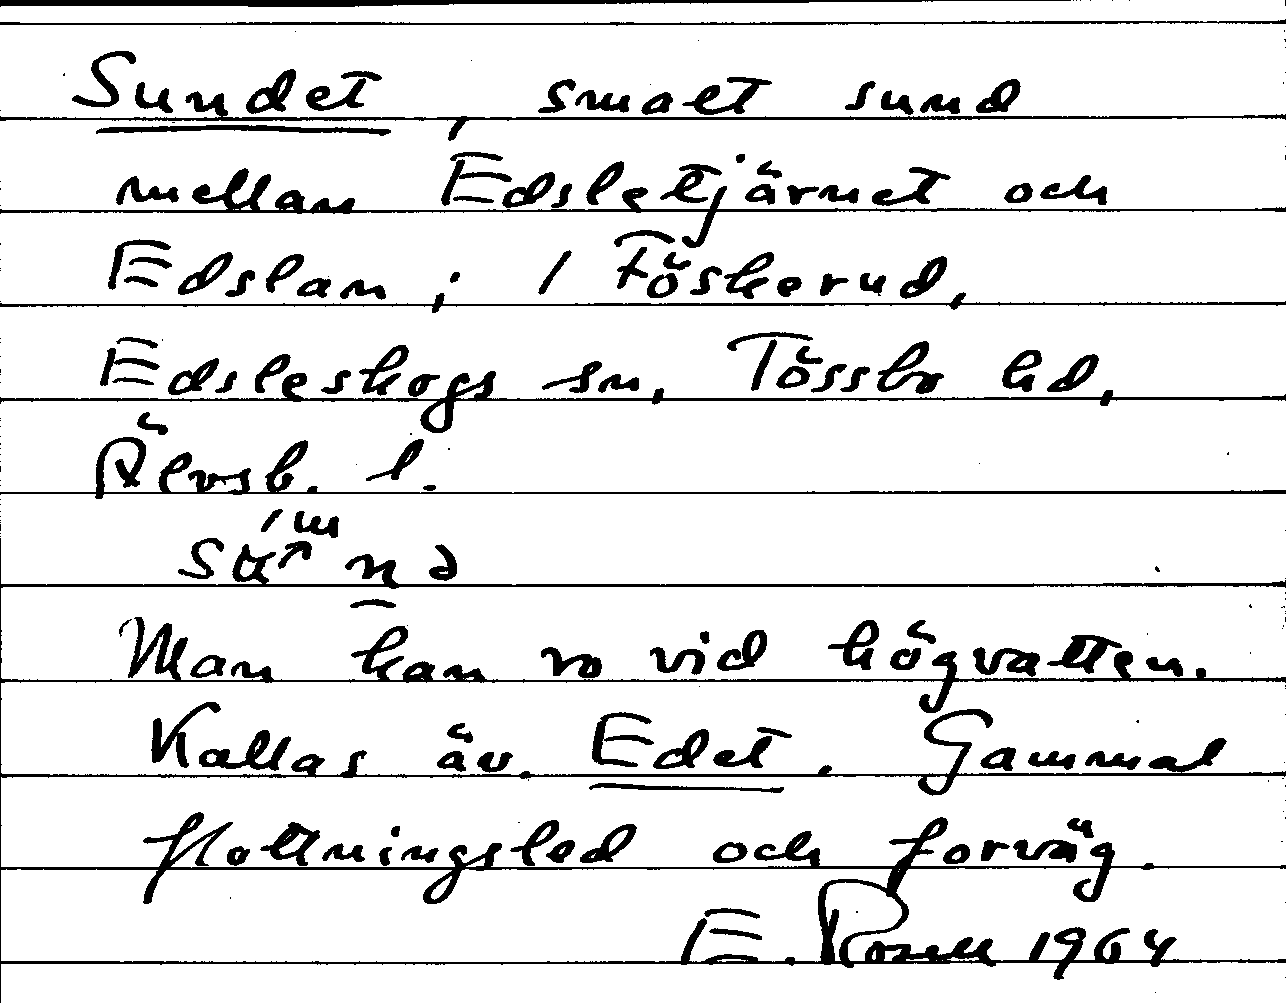 Sundet, smalt sund
mellan Edsletjärnet och
Edslan; i Föskerud,
Edsleskogs sn, Tössbo hd,
Älvsb. l.
Man kan ro vid högvatten.
Kallas äv. Edet. Gammal
flottningsled och forväg.
E. Rosell 1964